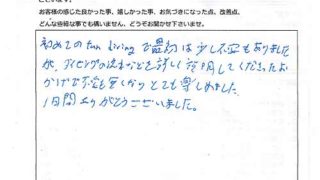 お客様の感じた良かった事、嬉しかった事、お気づきになった点、改善点、
どんな些細な事でも構いません、どうぞお聞かせ下さいませ。
初めてのfun divingで最初は少し不安もありました
が、ダイビングの流れなどを詳しく説明してくださったお
かげで不安も無くなりとても楽しめました。
1日間ありがとうございました。